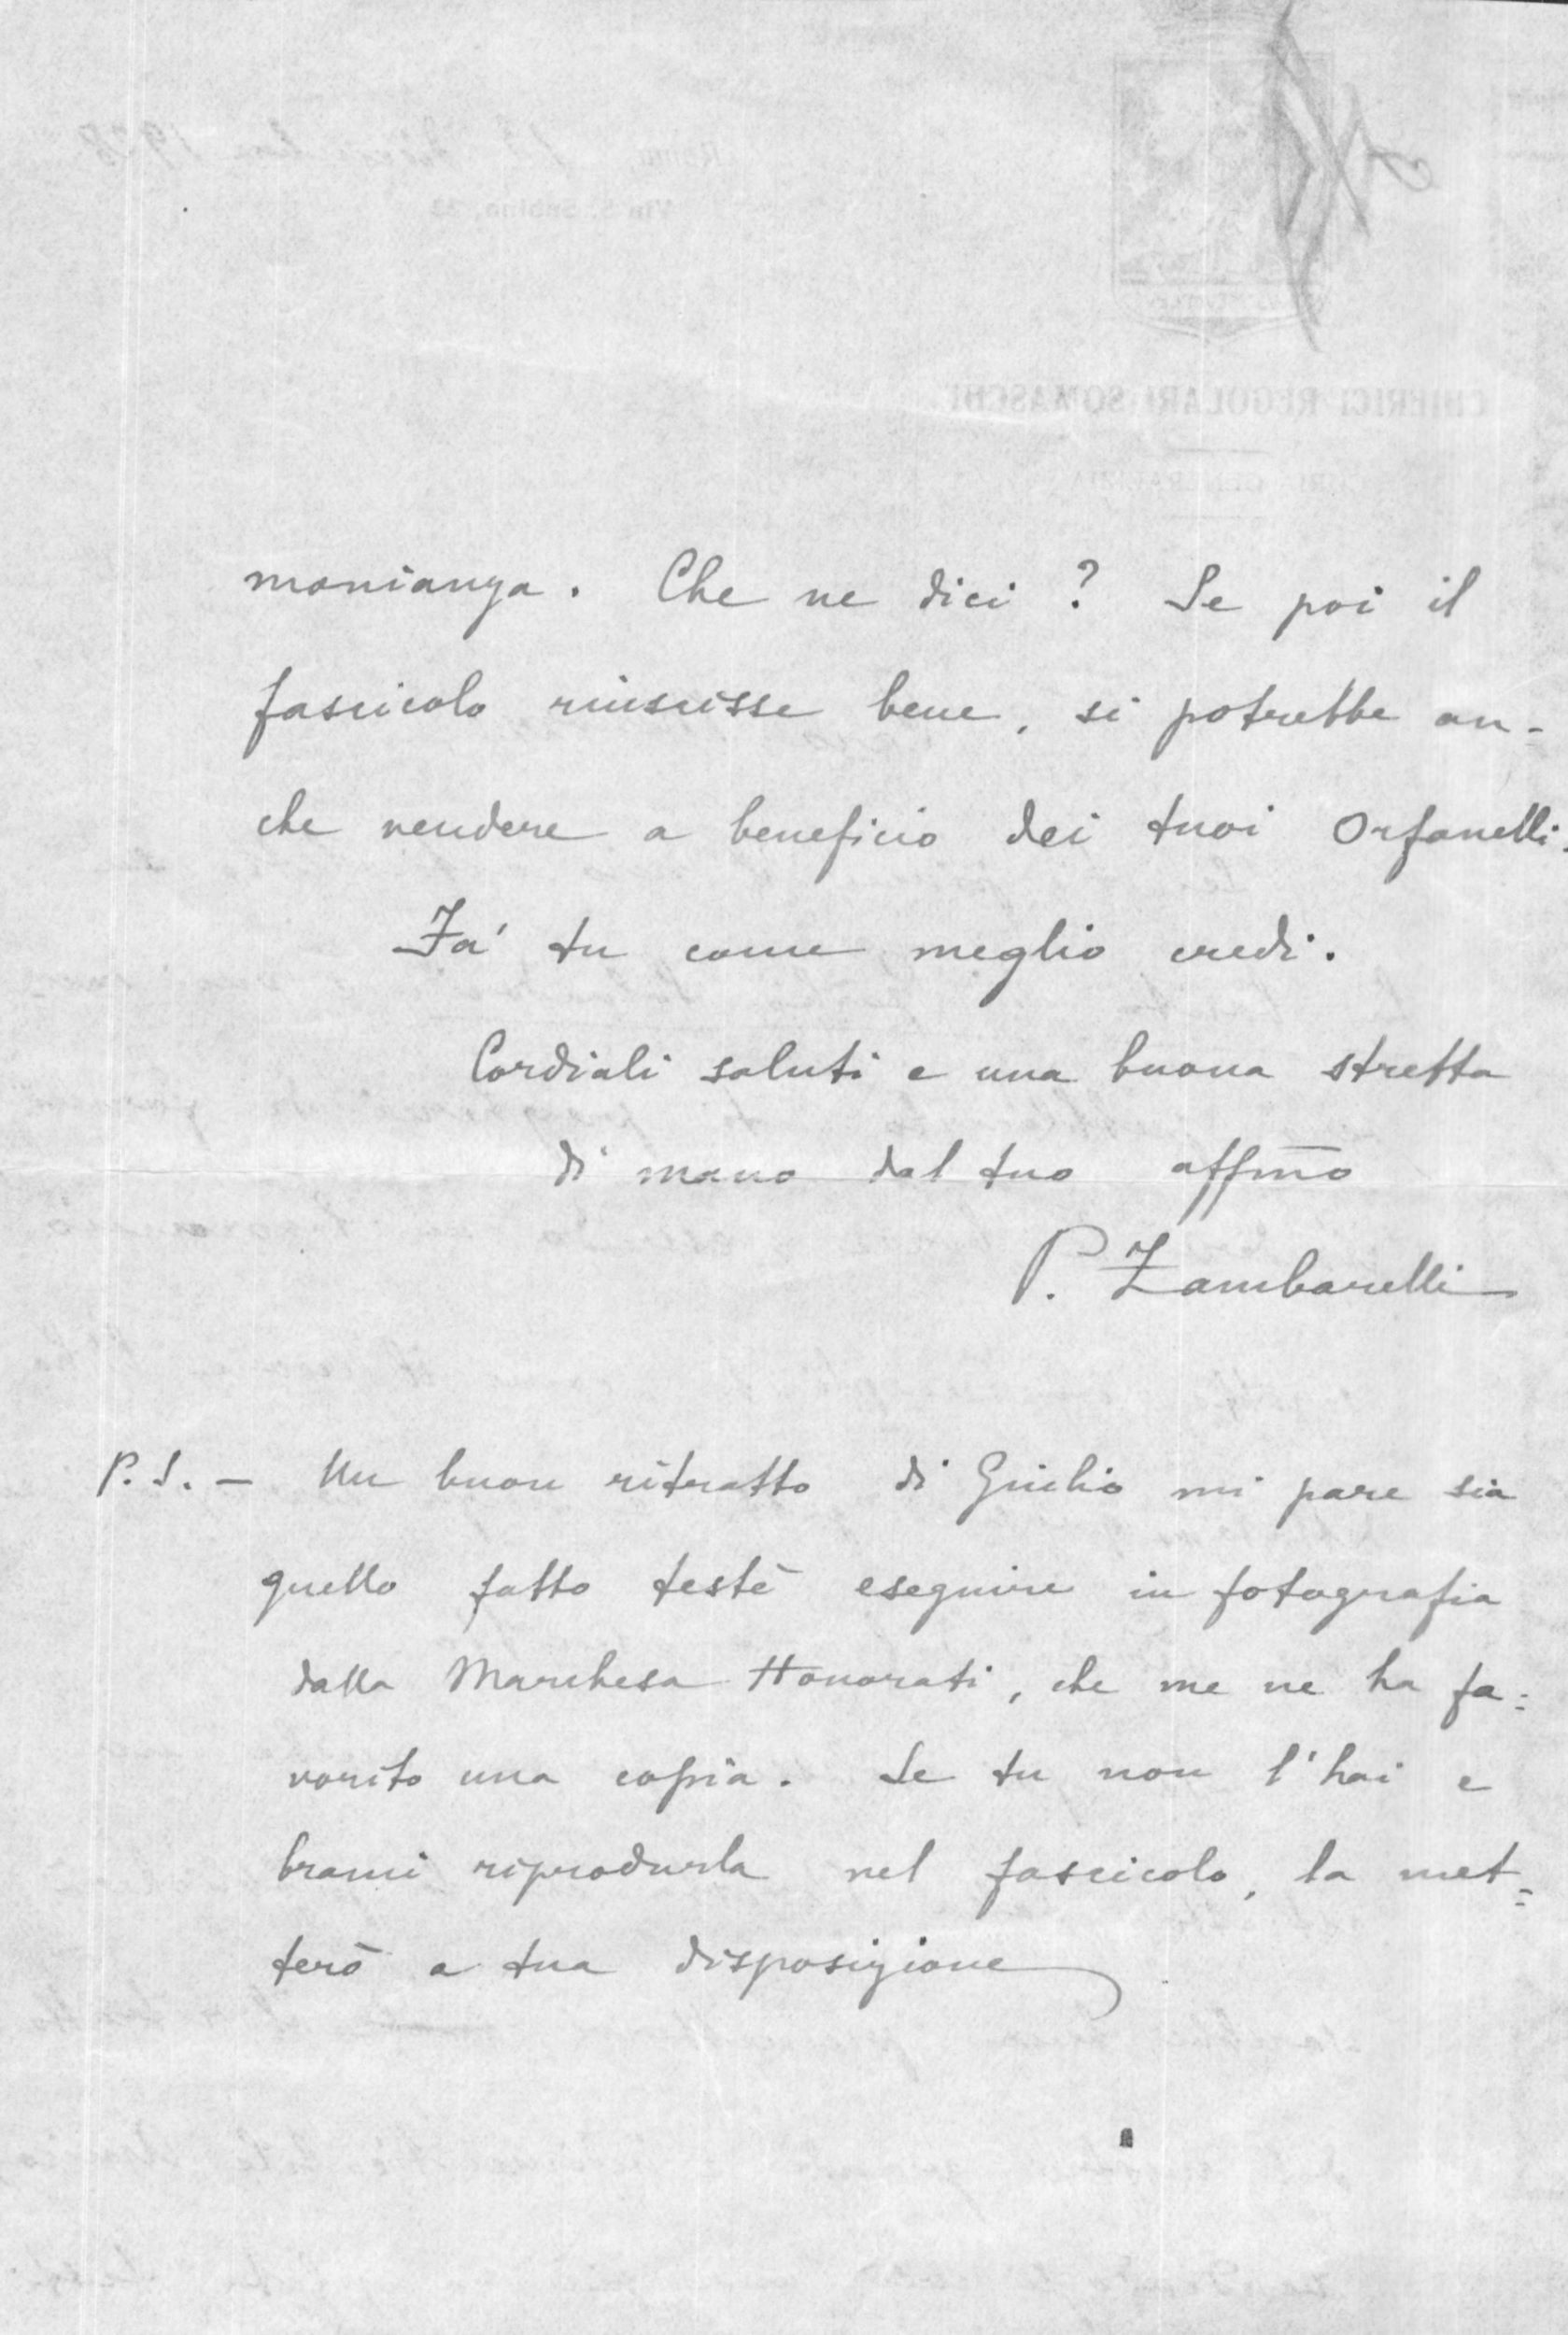 monianza. Che ne dici ? Se poi il
fascicolo riuscisse bene, si potrebbe an-
che vendere a beneficio dei tuoi Orfanelli.
Fa' tu come meglio credi.
Cordiali saluti e una buona stretta
di mano dal tuo affmo
P. Zambarelli
P.S. — Un buon ritratto di Giulio mi pare sia
quello fatto testè eseguire in fotografia
dalla Marchesa Honorati, che me ne ha fa=
vorito una copia. Se tu non l'hai e
brami riprodurla nel fascicolo, la met=
terò a tua disposizione